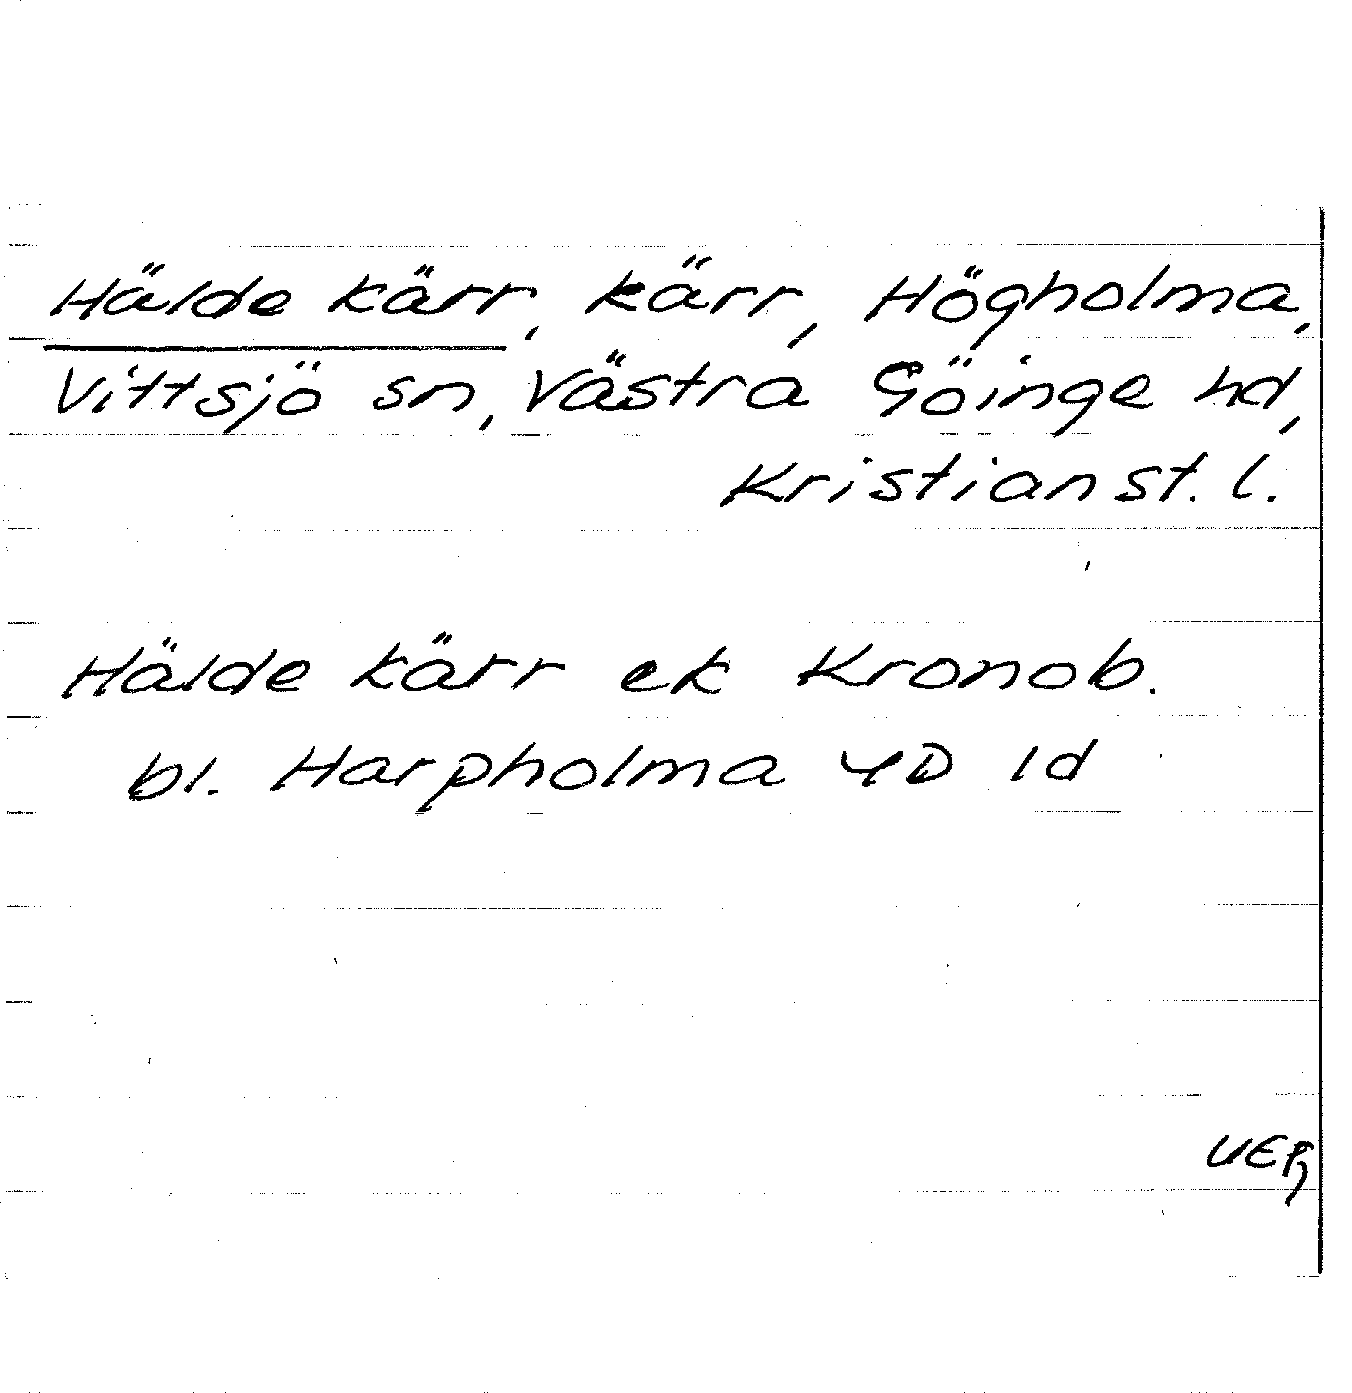 Hälde kärr, kärr, Högholma,
Vittsjö sn, Västra Göinge hd,
Kristianst. l.
Hälde kärr ek Kronob.
bl. Harpholma 4D 1d